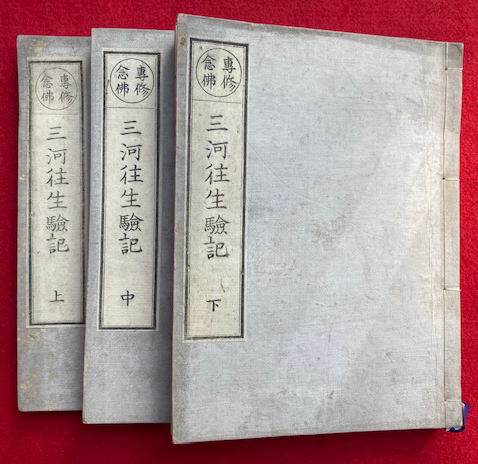 專修
念佛
三河往生驗記
下
專修
念佛
三河往生驗記
中
專修
念佛
三河往生驗記
上